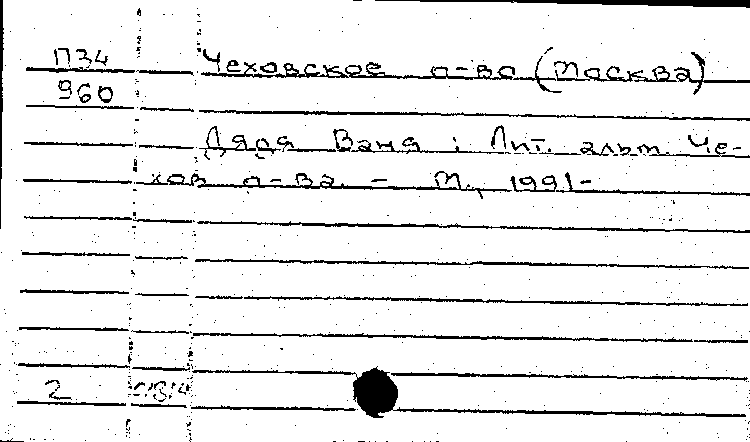 П34 Чеховское о-во (Москва)
960
Дядя Ваня : Лит. альм. Че-
хов о-ва. - М., 1991-
2